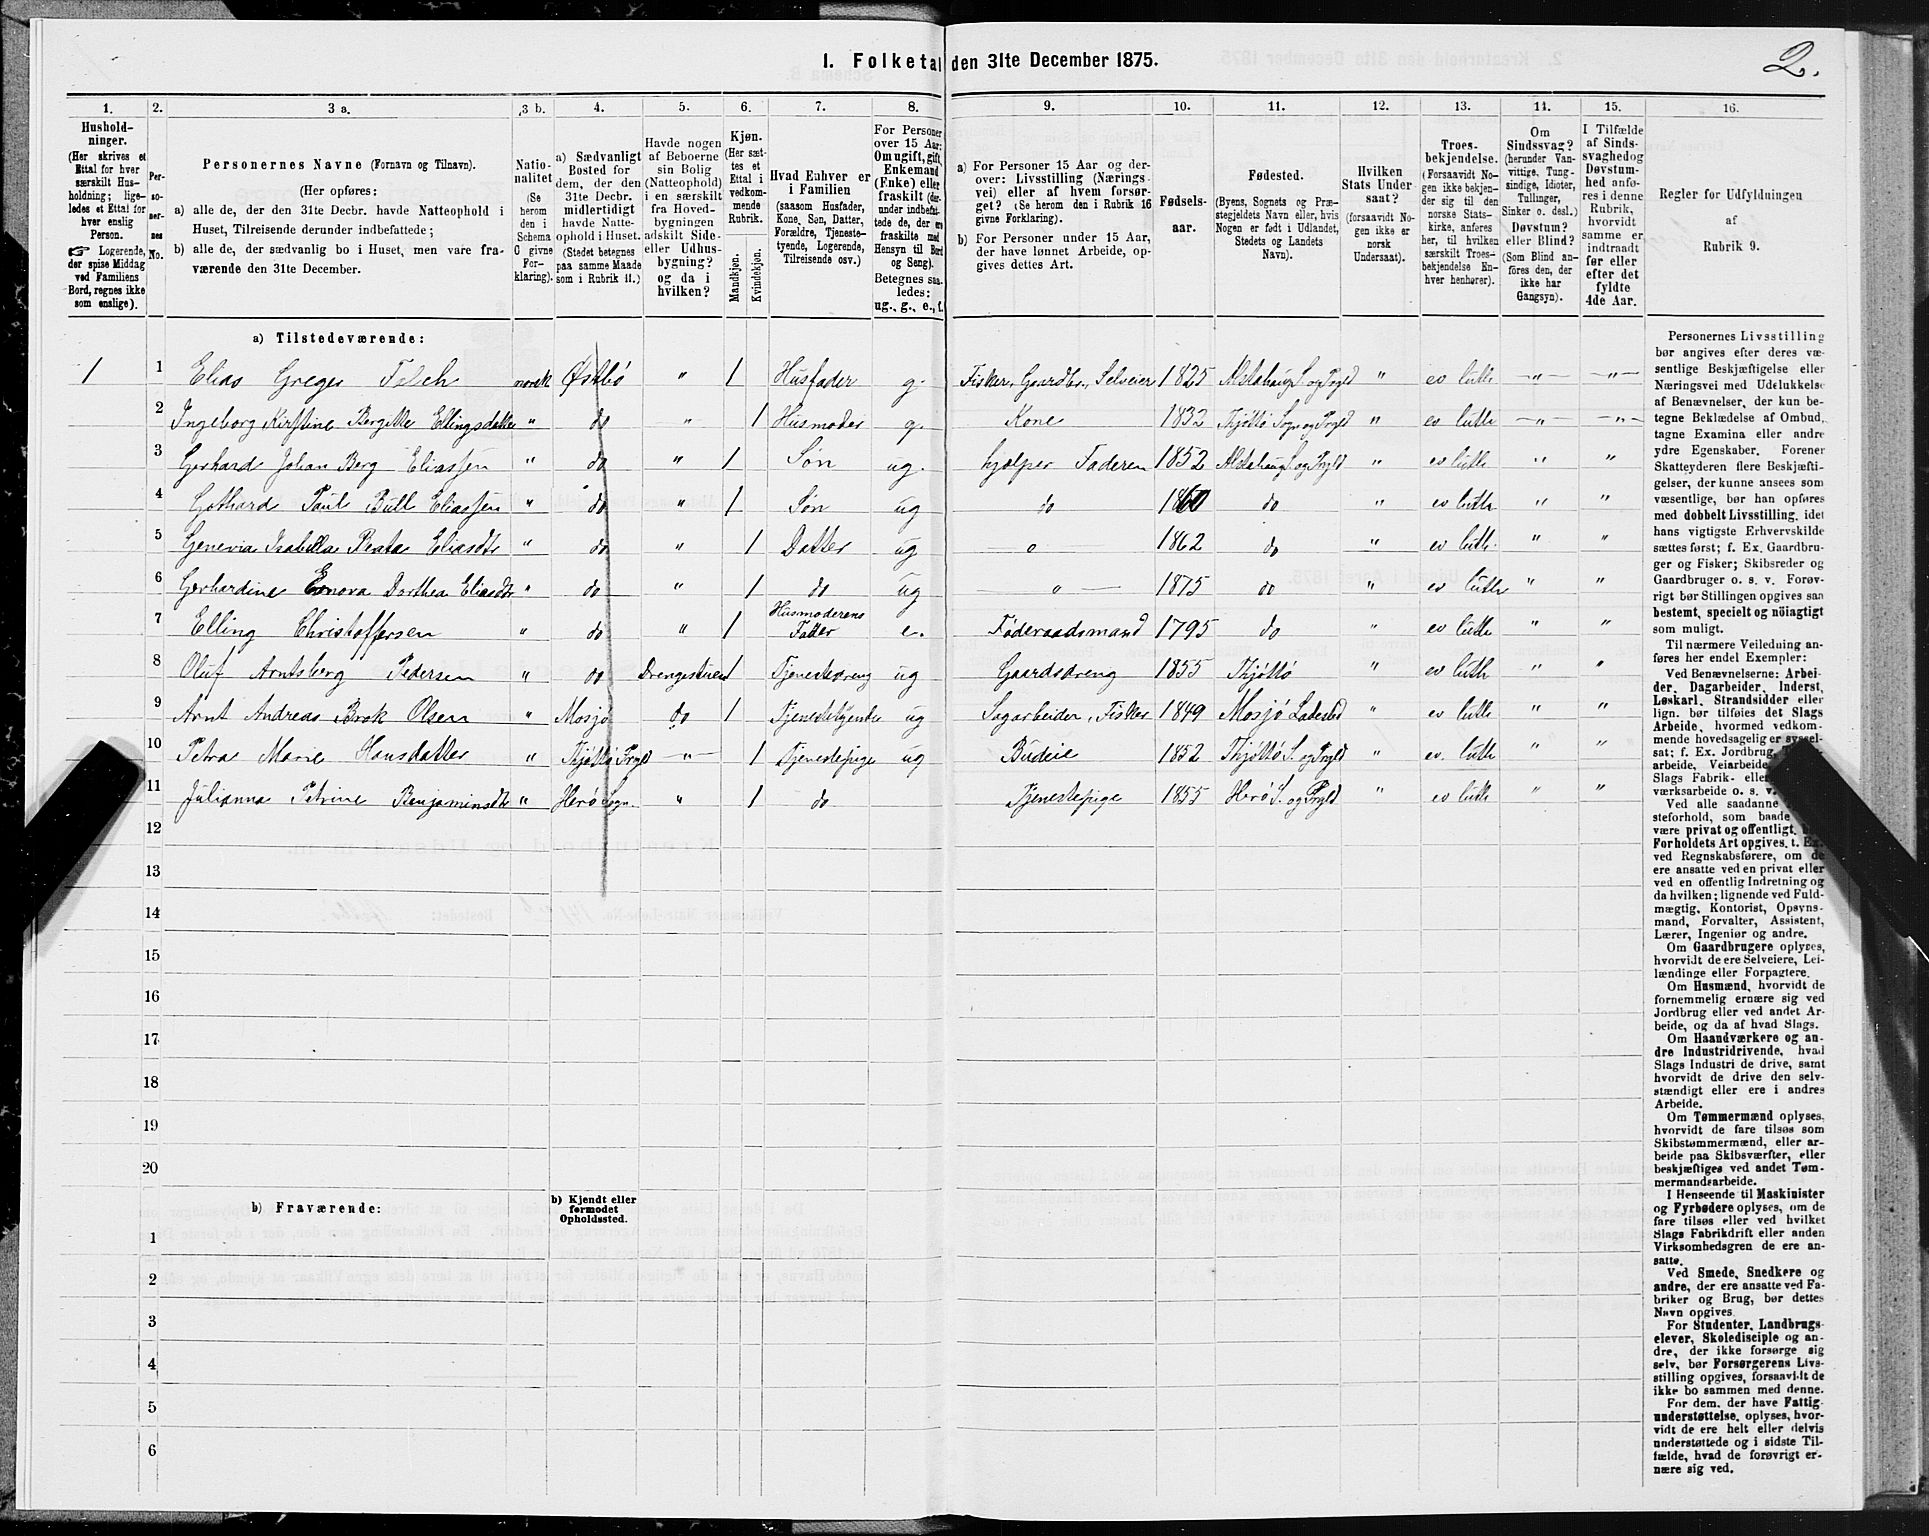 1. Folketal den 31te December 1875.
2.
1. 2. 3 a. 3 b. 4. 5. 6. 7. 8. 9. 10. 11. 12. 13. 14. 15. 16.
Hushold-
ninger.
(Her skrives et
Ettal for hver
særskilt Hus-
holdning; lige-
ledes et Ettal for
hver enslig
Person.
☞ Logerende,
der spise Middag
ved Familiens
Bord, regnes ikke
som enslige).
Per-
so-
ner-
nes
No.
Personernes Navne (Fornavn og Tilnavn).
(Her opføres:
a) alle de, der den 31te Decbr. havde Natteophold i
Huset, Tilreisende derunder indbefattede;
b) alle de, der sædvanlig bo i Huset, men vare fra-
værende den 31te December.
Natio-
nalitet
(Se
herom
den i
Schema
C givne
For-
klaring).
a) Sædvanligt
Bosted for
dem, der den
31te Decbr.
midlertidigt
havde Natte-
ophold i Huset.
(Stedet betegnes
paa samme Maade
som i Rubrik 11.)
Havde nogen
af Beboerne
sin Bolig
(Natteophold)
i en særskilt
fra Hoved-
bygningen
adskilt Side-
eller Udhus-
bygning?
og da i
hvilken?
Kjøn.
(Her sæt-
tes et
Ettal i
vedkom-
mende
Rubrik.
Mandkjøn.
Kvindekjøn.
Hvad Enhver er
i Familien
(saasom Husfader,
Kone, Søn, Datter,
Forældre, Tjeneste-
tyende, Logerende,
Tilreisende osv.)
For Personer
over 15 Aar:
Omugift, gift,
Enkemand
(Enke) eller
fraskilt (der-
under indbefat-
tede de, der ere
fraskilte med
Hensyn til Bord
og Seng).
Betegnes saa-
ledes:
ug., g., e., f.
a) For Personer 15 Aar og der-
over: Livsstilling (Nærings-
vei) eller af hvem forsør-
get? (Se herom den i Rubrik 16
givne Forklaring).
b) For Personer under 15 Aar,
der have lønnet Arbeide, op-
gives dettes Art.
Fødsels-
aar.
Fødested.
(Byens, Sognets og Præ-
stegjeldets Navn eller, hvis
Nogen er født i Udlandet,
Stedets og Landets
Navn).
Hvilken
Stats Under-
saat?
(forsaavidt No-
gen ikke er
norsk
Undersaat).
Troes-
bekjendelse.
(Forsaavidt No-
gen ikke bekjen-
der sig til den
norske Stats-
kirke, anføres
her, til hvilken
særskilt Troes-
bekjendelse En-
hver henhører).
Om
Sindssvag?
(herunder Van-
vittige, Tung-
sindige, Idioter,
Tullinger,
Sinker o. desl.)
Døvstum?
eller Blind?
(Som Blind an-
føres den, der
ikke har
Gangsyn).
I Tilfælde
af Sinds-
svaghed og
Døvstum-
hed anfø-
res i denne
Rubrik,
hvorvidt
samme er
indtraadt
før eller
efter det
fyldte
4de Aar.
Regler for Udfyldningen
af
Rubrik 9.
a) Tilstedeværende:
1 1 Elias Greger Falch norsk Østbø " 1 Husfader g. Fisker, Gaardbr., Selveier 1825 Alstahaug S. og Prgld " ev luth — " — — " —
2 Ingeborg Kirstine Bergitte Ellingsdatter " do " 1 Husmoder g. Kone 1832 Thjøttø Sogn og Prgld " ev luth — " — — " —
3 Gerhard Johan Berg Eliassen " do " 1 Søn ug. hjælper Faderen 1852 Alstahaug S. og Prgld " ev luth " "
4 Gothard Paul Bull Eliassen " do " 1 Søn ug do 1860 do " ev luth " "
5 Genevia Isabella Beata Eliasdtr " do " 1 Datter ug — " 1862 do " ev luth. " "
6 Gerhardine Enova Dorthea Eliasdtr " do " 1 do ug — " — 1875 do " ev luth " "
7 Elling Christoffersen " do " 1 Husmoderens Fader e. Føderaadsmand 1795 do " ev luth " "
8 Oluf Arntsberg Pedersen " do Drengestuen 1 Tjenestedreng ug Gaardsdreng 1855 Thjøttø " ev luth " "
9 Arnt Andreas Brok Olsen " Mosjø do 1 Tjenestetyende ug Sagarbeider, Fisker 1849 Mosjø Ladested " ev luth " "
10 Petra Marie Hansdatter " Thjøttø Prgld — " — 1 Tjenestepige ug Budeie 1852 Thjøttø S. og Prgld " ev. luth " "
11 Julianna Petrine Benjaminsdtr " Herø Sogn. " 1 do Tjenestepige 1855 Herø S. og Prgld " ev luth " "
12
13
14
15
16
17
18
19
20
b) Fraværende:
b) Kjendt eller
formodet
Opholdssted.
1
2
3
4
5
6
Personernes Livsstilling
bør angives efter deres væ-
sentlige Beskjæftigelse eller
Næringsvei med Udelukkelse
af Benævnelser, der kun be-
tegne Beklædelse af Ombud,
tagne Examina eller andre
ydre Egenskaber. Forener
Skatteyderen flere Beskjæfti-
gelser, der kunne ansees som
væsentlige, bør han opføres
med dobbelt Livsstilling, idet
hans vigtigste Erhvervskilde
sættes først; f. Ex. Gaardbru-
ger og Fisker; Skibsreder og
Gaardbruger o. s. v. Forøv-
rigt bør Stillingen opgives saa
bestemt, specielt og nøiagtigt
som muligt.
Til nærmere Veiledning an-
føres her endel Exempler:
Ved Benævnelserne: Arbei-
der, Dagarbeider, Inderst,
Løskarl, Strandsidder eller
lign. bør tilføies det Slags
Arbeide, hvormed vedkom-
mende hovedsagelig er syssel-
sat; f. Ex. Jordbrug,
arbeide, Veiarbeide,
Slags Fabrik- eller
værksarbeide o. s. v.
Ved alle saadanne
steforhold, som baade
være privat og offentligt,
Forholdets Art opgives, t. Ex.
ved Regnskabsførere, om de
ere ansatte ved en privat eller
ved en offentlig Indretning og
da hvilken; lignende ved Fuld-
mægtig, Kontorist, Opsyns-
mand, Forvalter, Assistent,
Lærer, Ingeniør og andre.
Om Gaardbrugere oplyses,
hvorvidt de ere Selveiere, Lei-
lændinge eller Forpagtere.
Om Husmænd, hvorvidt de
fornemmelig ernære sig ved
Jordbrug eller ved andet Ar-
beide, og da af hvad Slags.
Om Haandværkere og an-
dre Industridrivende, hvad
Slags Industri de drive, samt
hvorvidt de drive den selv-
stændigt eller ere i andres
Arbeide.
Om Tømmermænd oplyses,
hvorvidt de fare tilsøs som
Skibstømmermænd, eller ar-
beide paa Skibsværfter, eller
beskjæftiges ved andet Tøm-
mermandsarbeide.
I Henseende til Maskinister
og Fyrbødere oplyses, om de
fare tilsøs eller ved hvilket
Slags Fabrikdrift eller anden
Virksomhedsgren de ere an-
satte.
Ved Smede, Snedkere og
andre, der ere ansatte ved Fa-
briker og Brug, bør dettes
Navn opgives.
For Studenter, Landbrugs-
elever, Skoledisciple og an-
dre, der ikke forsørge sig
selv, bør Forsørgerens Livs-
stilling opgives, forsaavidt de
ikke bo sammen med denne.
For dem, der have Fattig-
understøttelse, oplyses, hvor-
vidt de ere helt eller delvis
understøttede og i sidste Til-
fælde, hvad de forøvrigt er-
nære sig ved.